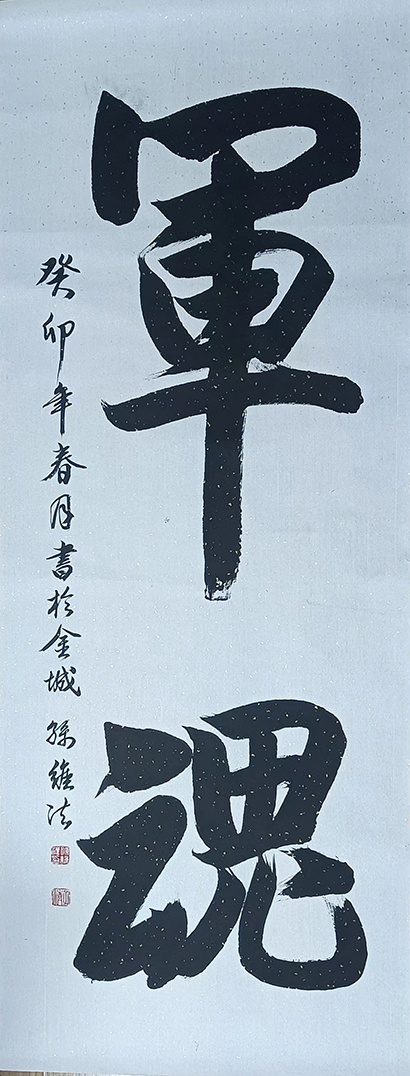 軍魂
癸卯年春月書於金城 孫維法